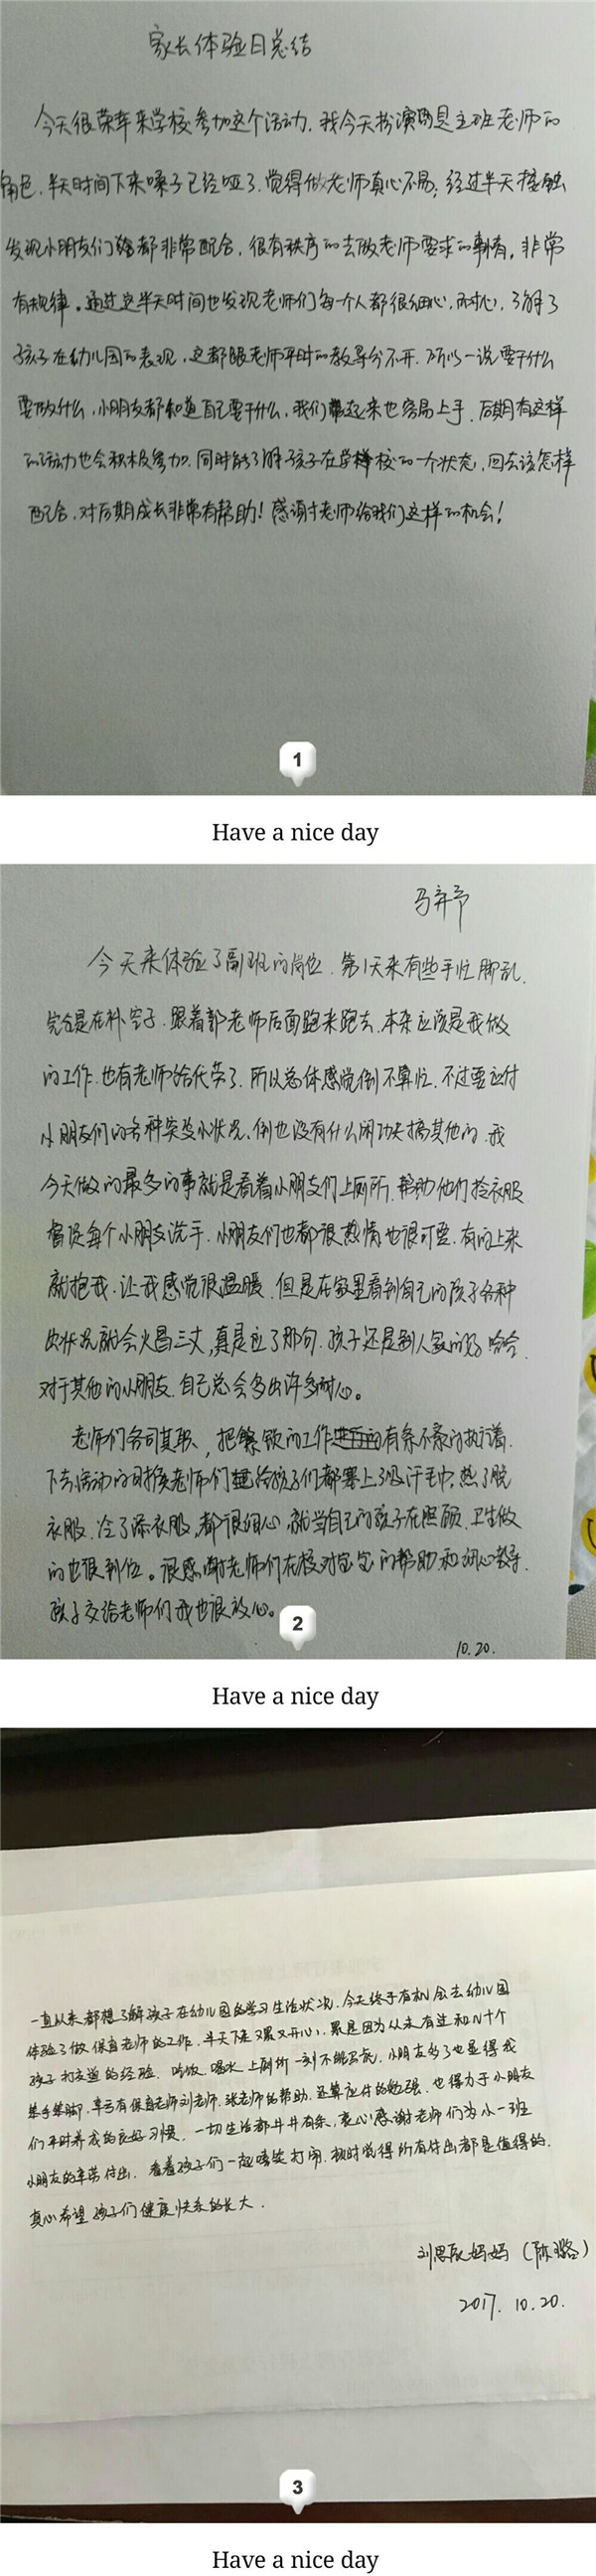 家长体验日总结
今天很荣幸来学校参加这个活动，我今天扮演的是主班老师的
角色，半天时间下来嗓子已经哑了，觉得做老师真心不易，经过半天接触
发现小朋友们都非常配合，很有秩序的去做老师要求的事情，非常
有规律。通过这半天时间也发现老师们每个人都很细心，耐心，了解了
孩子在幼儿园的表现，这都跟老师平时的教导分不开，所以一说要干什么
要做什么，小朋友都知道自己要干什么，我们带起来也容易上手，后期有这样
的活动也会积极参加，同时能了解孩子在学校的一个状态，回去该怎样
配合，对后期成长非常有帮助！感谢老师给我们这样的机会！
1
Have a nice day
马弈予
今天来体验了副班的岗位，第1天来有些手忙脚乱，
完全是在补空子，跟着郭老师后面跑来跑去，本来应该是我做
的工作，也有老师给代劳了，所以总体感觉倒不算忙，不过要应付
小朋友们的各种突发小状况，倒也没有什么闲功夫搞其他的，我
今天做的最多的事就是看着小朋友们上厕所，帮助他们拾衣服
督促每个小朋友洗手，小朋友们也都很热情也很可爱，有的上来
就抱我，让我感觉很温暖，但是在家里看到自己的孩子各种
出状况就会火冒三丈，真是应了那句，孩子还是别人家的好 哈哈
对于其他的小朋友，自己总会多出许多耐心。
老师们各司其职，把繁琐的工作有条不紊的执行着，
下去活动的时候老师们给孩子们都塞上了吸汗毛巾，热了脱
衣服，冷了添衣服，都很细心，就当自己的孩子在照顾，卫生做
的也很到位。很感谢老师们在校对宝宝的帮助和细心教导，
孩子交给老师们我也很放心。
2
10.20.
Have a nice day
一直以来都想了解孩子在幼儿园的学习生活状况，今天终于有机会去幼儿园
体验了做保育老师的工作，半天下来又累又开心，累是因为从来有过和N十个
孩子打交道的经验，吃饭、喝水、上厕所一刻不能马虎，小朋友多了也显得我
笨手笨脚，幸亏有保育老师刘老师，张老师的帮助，还算应付的勉强，也得力于小朋友
们平时养成的良好习惯，一切生活都井井有条，衷心感谢老师们为小一班
小朋友的辛苦付出，看着孩子们一起嘻笑打闹，顿时觉得所有付出都是值得的，
真心希望孩子们健康快乐的长大．
刘思辰妈妈（陈璐）
2017．10.20.
3
Have a nice day